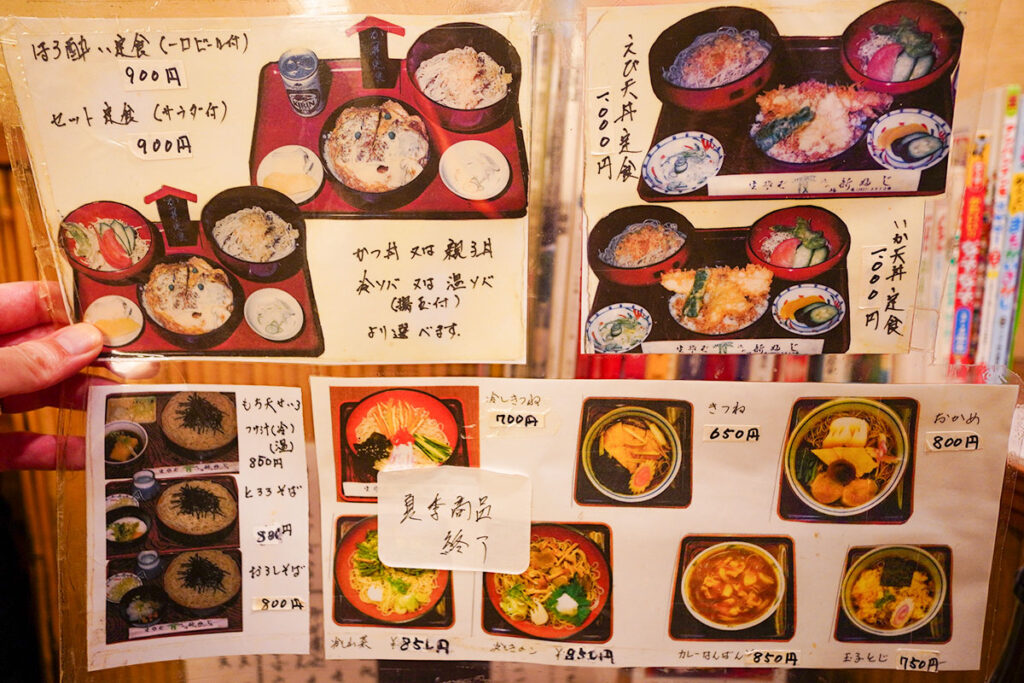 ほろ酔い定食(一口ビール付)
900円
セット定食(サラダ付)
900円
かつ丼 又は 親子丼
冷ソバ 又は 温ソバ
(鶏玉付)
より選べます。
KIRIN
えび天丼定食
1.000円
いか天丼定食
1.000円
もち天せいろ
つけ汁(冷)
(温)
850円
とろろそば
おろしそば
800円
冷しきつね
700円
きつね
650円
おかめ
800円
夏季商品
終了
冷山菜
カレーなんばん
850円
玉子とじ
750円